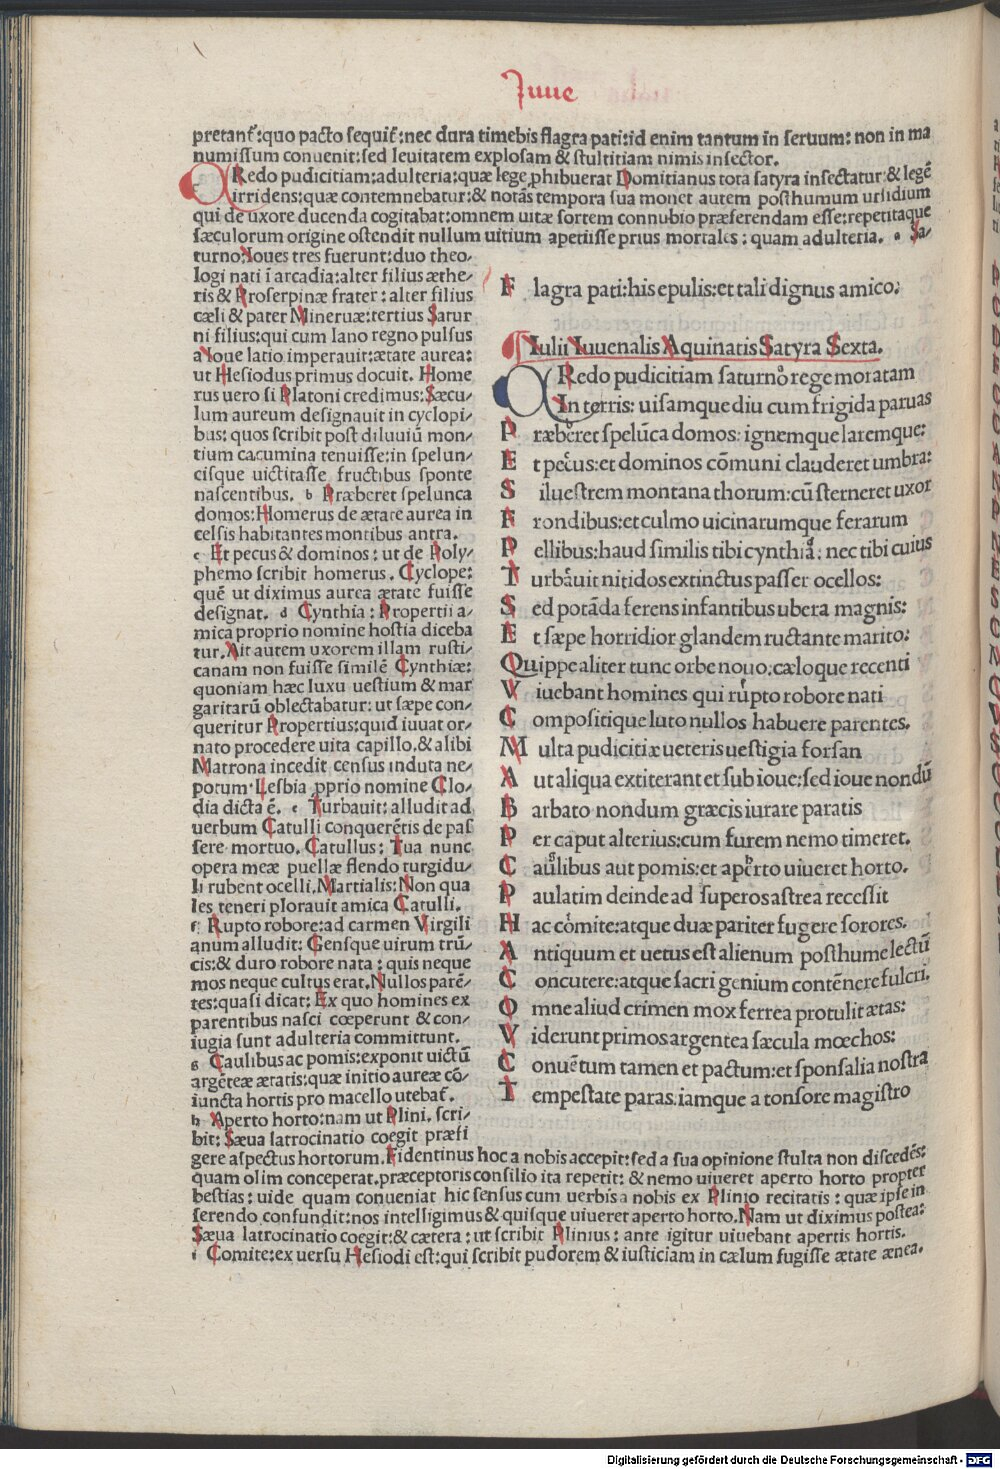 Juue
pretant᷑:quo pacto sequit᷑:nec dura timebis flagra pati:id enim tantum in seruum: non in ma
numissum conuenit:sed leuitatem explosam & stultitiam nimis insector.
Redo pudicitiam:adulteria:quæ lege ꝓhibuerat Domitianus tota satyra insectatur:& legē
irridens:quæ contemnebatur:& notās tempora sua monet autem posthumum ursidium
qui de uxore ducenda cogitabat:omnem uitæ sortem connubio præferendam esse:repetitaque
sæculorum origine ostendit nullum uitium aperiisse prius mortales : quam adulteria. a Sa/
turno:Ioues tres fuerunt:duo theo/
logi nati ī arcadia:alter filius æthe/
ris & Proserpinæ frater : alter filius
cæli & pater Mineruæ:tertius Satur
ni filius:qui cum Iano regno pulsus
a Ioue latio imperauit:ætate aurea:
ut Hesiodus primus docuit. Home
rus uero si Platoni credimus:Sæcu/
lum aureum designauit in cyclopi/
bus: quos scribit post diluuiū mon/
tium cacumina tenuisse:in spelun/
cisque uictitasse fructibus sponte
nascentibus. b Præberet spelunca
domos:Homerus de ætate aurea in
celsis habitantes montibus antra.
c Et pecus & dominos : ut de Poly/
phemo scribit homerus. Cyclope:
quē ut diximus aurea ætate fuisse
designat. d Cynthia : Propertii a/
mica proprio nomine hostia diceba
tur. Ait autem uxorem illam rusti/
canam non fuisse similē Cynthiæ:
quoniam hæc luxu uestium & mar
garitarū oblectabatur: ut sæpe con/
queritur Propertius:quid iuuat or/
nato procedere uita capillo.& alibi
Matrona incedit census induta ne/
potum·Lesbia ꝓprio nomine Clo/
dia dicta ē. e Turbauit:alludit ad
uerbum Catulli conquerētis de pas
sere mortuo. Catullus : Tua nunc
opera meæ puellæ flendo turgidu/
li rubent ocelli.Martialis:Non qua
les teneri plorauit amica Catulli.
f Rupto robore:ad carmen Virgili
anum alludit: Gensque uirum trū/
cis:& duro robore nata : quis neque
mos neque cultus erat.Nullos parē/
tes:quasi dicat: Ex quo homines ex
parentibus nasci cœperunt & con/
iugia sunt adulteria committunt.
g Caulibus ac pomis:exponit uictū
argēteæ ætatis:quæ initio aureæ cō/
iuncta hortis pro macello utebat᷑.
h Aperto horto:nam ut Plini. scri/
bit: Sæua latrocinatio coegit præfi
gere aspectus hortorum.Fidentinus hoc a nobis accepit:sed a sua opinione stulta non discedēs:
quam olim conceperat.præceptoris consilio ita repetit: & nemo uiueret aperto horto propter
bestias: uide quam conueniat hic sensus cum uerbis a nobis ex Plinio recitatis : quæ ipse in
serendo confundit:nos intelligimus & quisque uiueret aperto horto.Nam ut diximus postea:
Sæua latrocinatio coegit:& cætera : ut scribit Plinius : ante igitur uiuebant apertis hortis.
i Comite:ex uersu Hesiodi est:qui scribit pudorem & iusticiam in cælum fugisse ætate ænea.
F lagra pati:his epulis:et tali dignus amico:
Iulii Iuuenalis Aquinatis Satyra Sexta.
Redo pudicitiam saturno rege moratam
In terris: uisamque diu cum frigida paruas
P ræberet spelūca domos: ignemque laremque:
E t pecus:et dominos cōmuni clauderet umbra:
S iluestrem montana thorum:cū sterneret uxor
F rondibus:et culmo uicinarumque ferarum
P ellibus:haud similis tibi cynthia: nec tibi cuius
T urbauit nitidos extinctus passer ocellos:
S ed potāda ferens infantibus ubera magnis:
E t sæpe horridior glandem ructante marito:
Quippe aliter tunc orbe nouo.cæloque recenti
V iuebant homines qui rupto robore nati
C ompositique luto nullos habuere parentes.
M ulta pudicitiæ ueteris uestigia forsan
A ut aliqua extiterant et sub ioue:sed ioue nondū
B arbato nondum græcis iurare paratis
P er caput alterius:cum furem nemo timeret.
C aulibus aut pomis:et aperto uiueret horto.
P aulatim deinde ad superos astrea recessit
H ac comite:atque duæ pariter fugere sorores.
A ntiquum et uetus est alienum posthume lectū
C oncutere:atque sacri genium contēnere fulcri.
O mne aliud crimen mox ferrea protulit ætas:
V iderunt primos argentea sæcula mœchos:
C onuētum tamen et pactum:et sponsalia nostra
T empestate paras.iamque a tonsore magistro
Digitalisierung gefördert durch die Deutsche Forschungsgemeinschaft - DFG